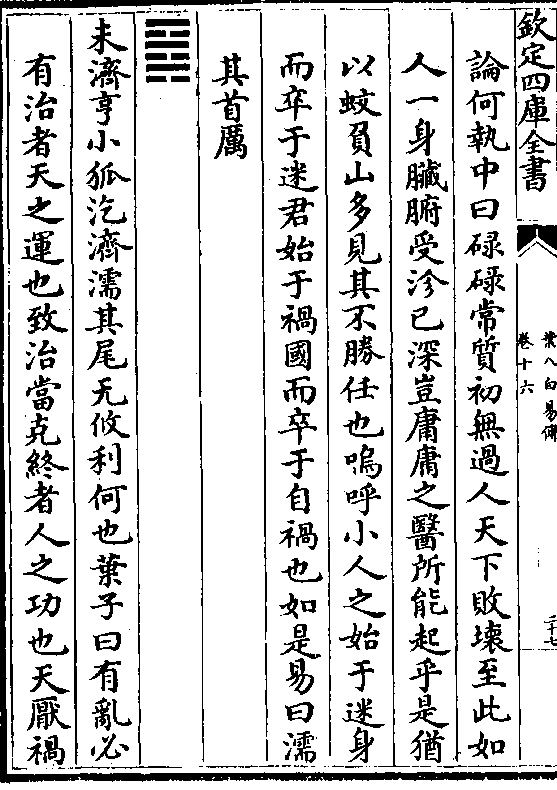 欽定四庫全書
葉八白易傳
卷十六
二十七
論何執中曰碌碌常質初無過人天下敗壞至此如
人一身臟腑受沴已深豈庸庸之醫所能起乎是猶
以蚊負山多見其不勝任也嗚呼小人之始于迷身
而卒于迷君始于禍國而卒于自禍也如是易曰濡
其首厲
未濟亨小狐汔濟濡其尾无攸利何也葉子曰有亂必
有治者天之運也致治當克終者人之功也天厭禍